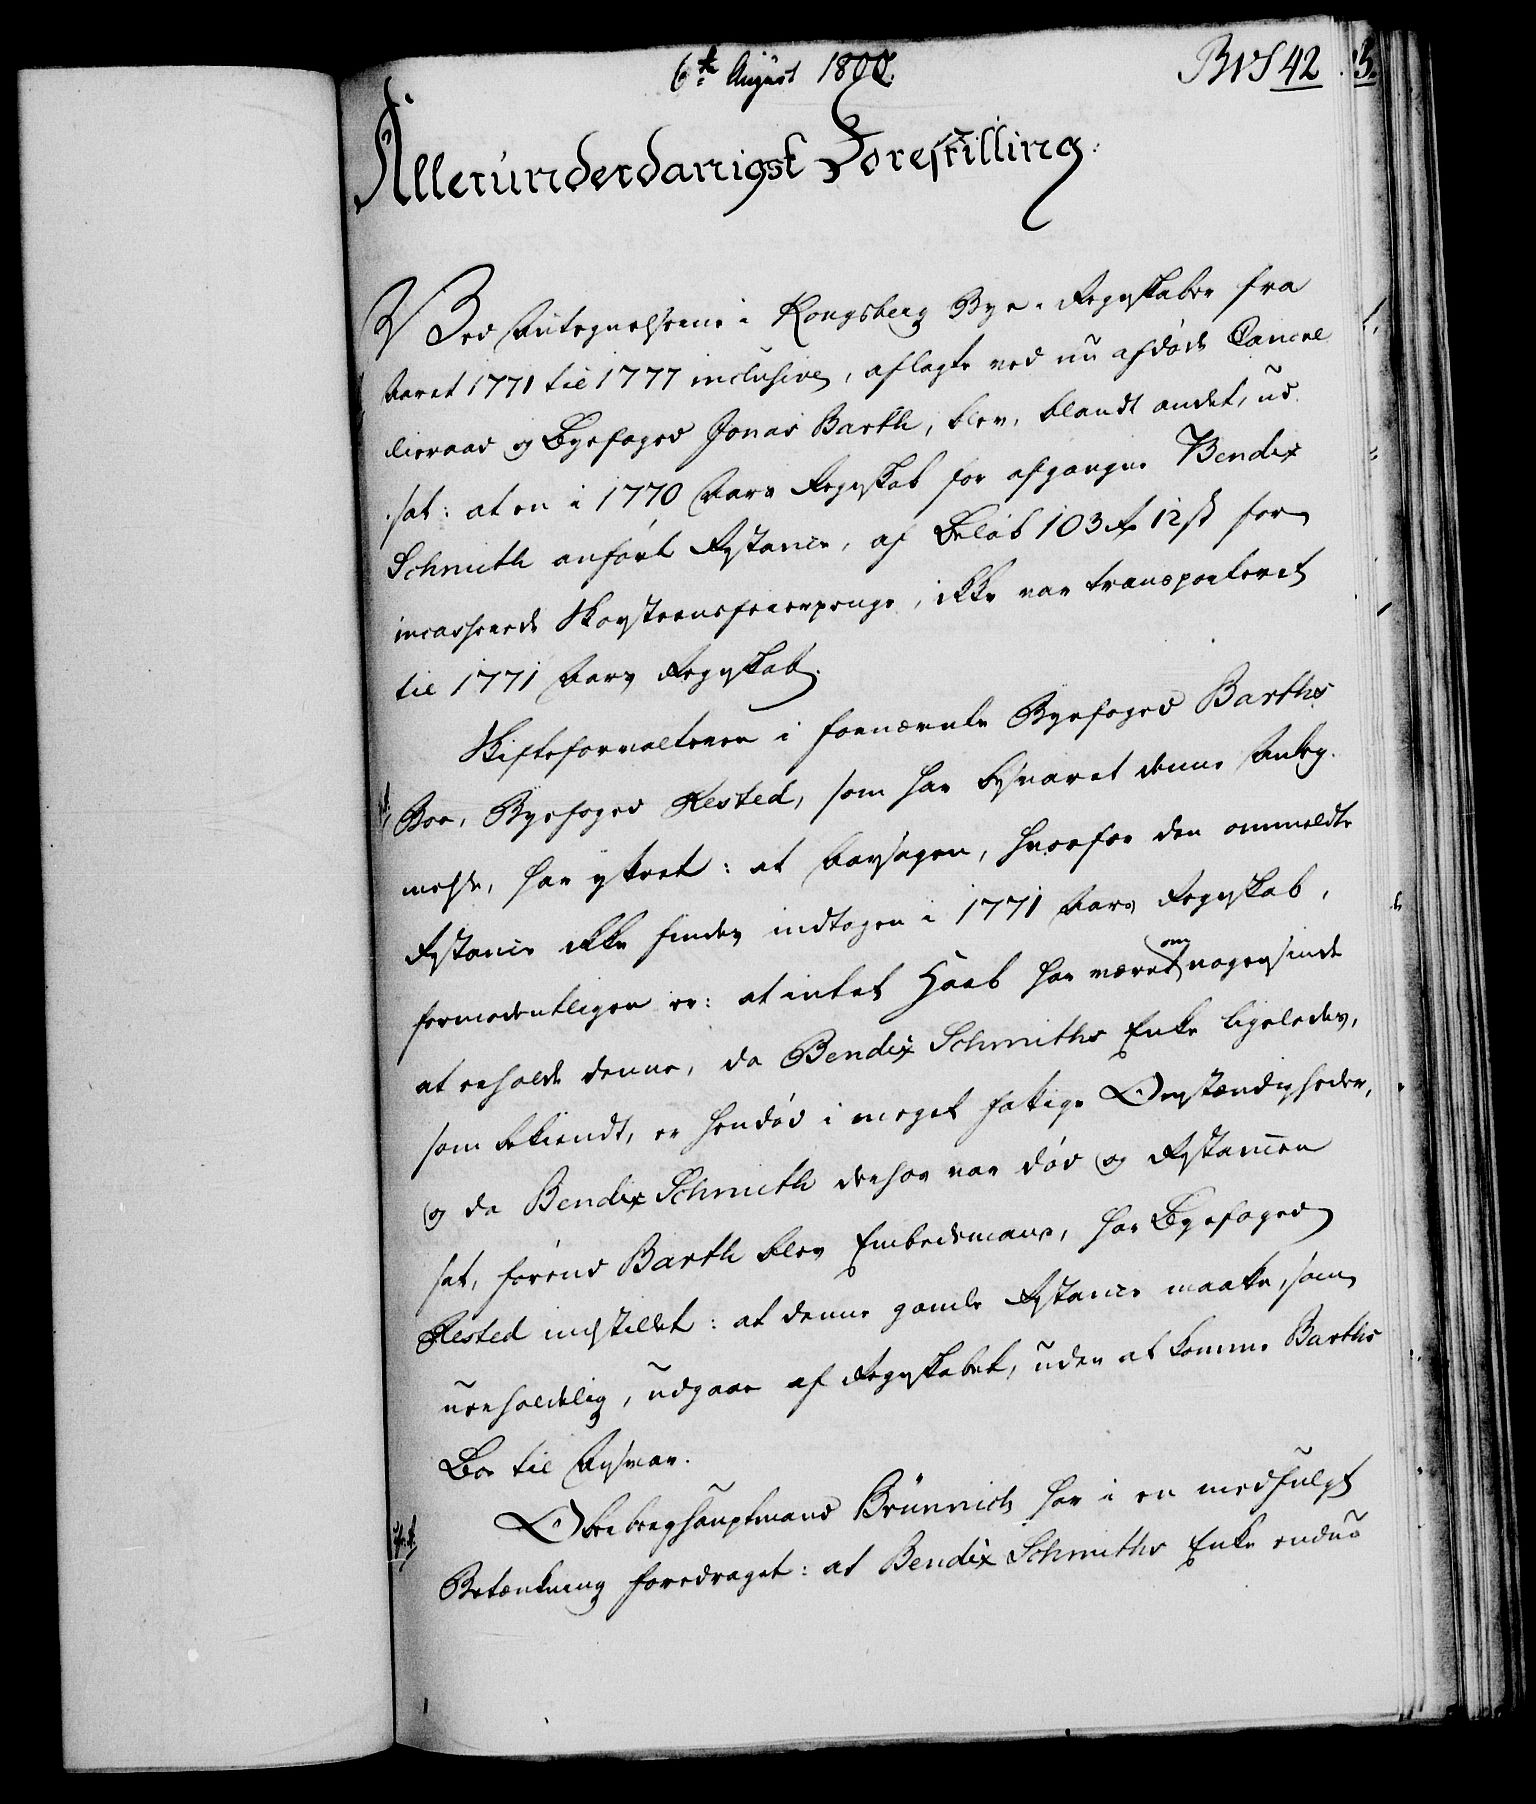 6te August 1800.
BVS 42
Allerunderdanigst Forestilling.
Ved Antegnelserne i Kongsberg Bye-Regnskaber fra
Aaret 1771 til 1777 inclusive, aflagte ved nu afdøde Cancel
lieraad og Byefoged Jonas Barth, blev, blandt andet, ud
sat: at en i 1770 Aars Regnskab for afgangne Bendix
Schmith anført Restance, af Beløb 103 rd 12 sk for
incasserede Skorsteensfeierpenge, ikke var transporteret
til 1771 Aars Regnskab.
Skifteforvalteren i fornævnte Byefoged Barths
Boe, Byefoged Rested, som har besvaret denne Anteg-
nelse, har yttret: at Aarsagen, hvorfor den ommeldte
Restance ikke findes indtagen i 1771 Aars Regnskab,
formodentligen er: at intet Haab har været om nogensinde
at erholde denne, da Bendix Schmiths Enke ligeledes,
som bekiendt, er hendød i meget fattige Omstændigheder,
og da Bendix Schmith derhos var død og Restancen
sat, førend Barth blev Embedsmand, har Byefoged
Rested indstillet: at denne gamle Restance maatte, som
uerholdelig, udgaae af Regnskabet, uden at komme Barths
Boe til Ansvar.
Oberberghauptmand Brünnich har i en medfulgt
Betænkning foredraget: at Bendix Schmiths Enke endnu